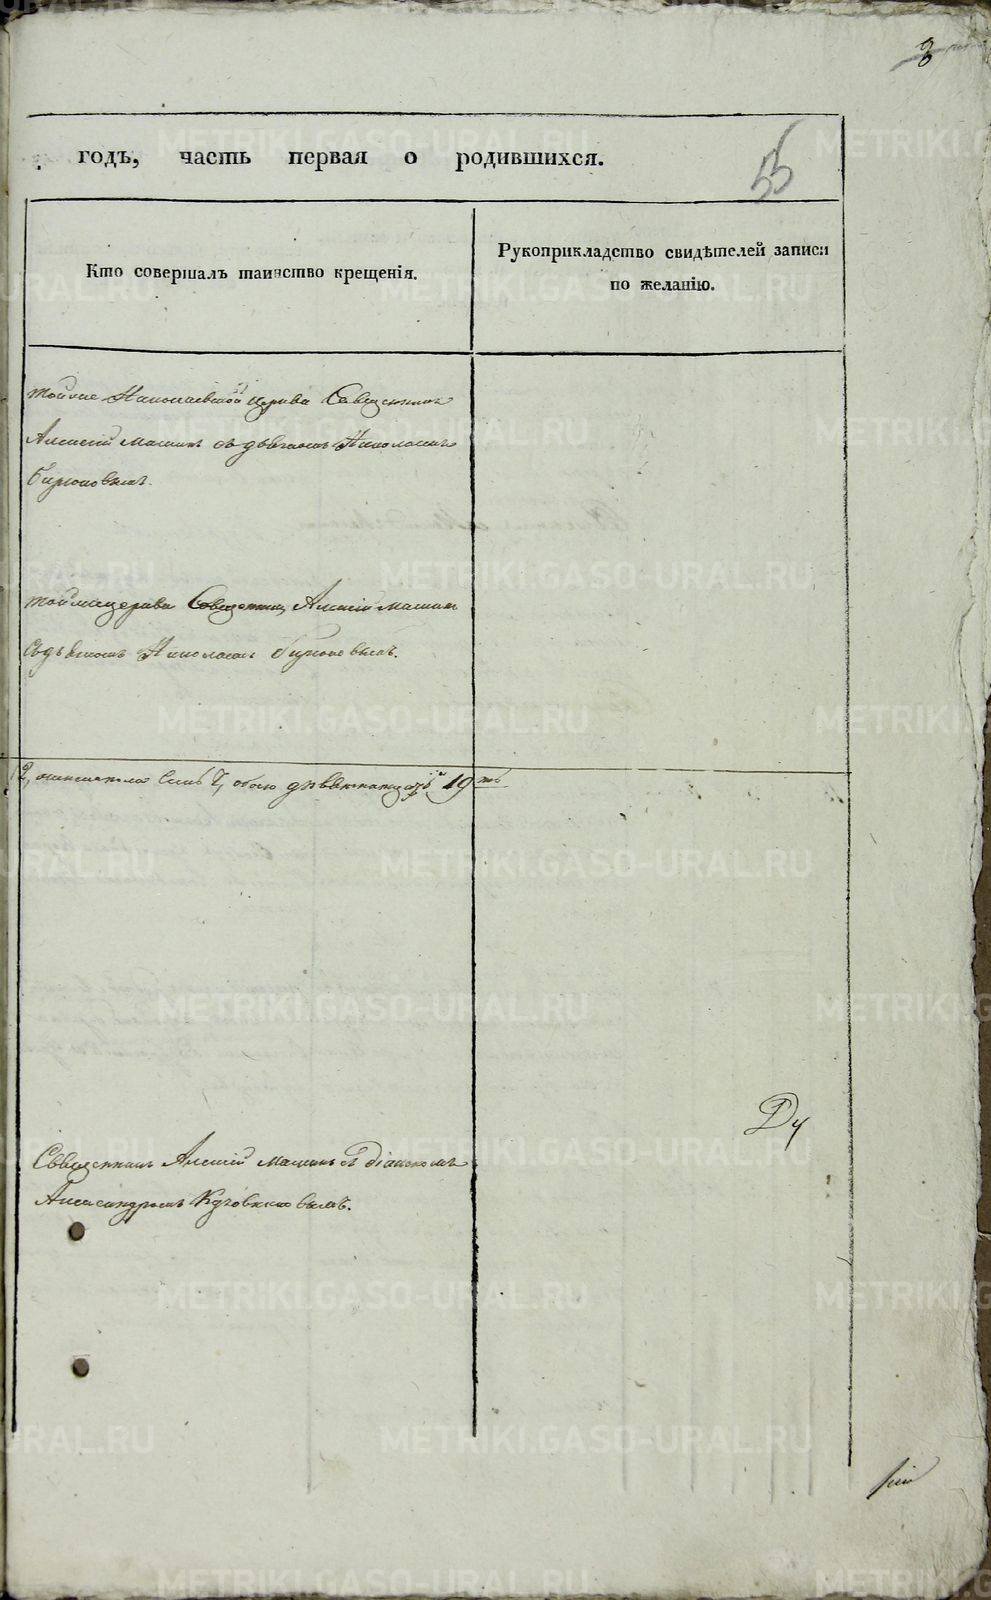 8
годъ, часть первая о родившихся.
55
Кто совершалъ таинство крещенія.
Рукоприкладство свидѣтелей записи
по желанію.
тойже Николаевской церкви Священникъ
Алексій Машинъ съ дьячкомъ Николаемъ
Бирюковымъ.
тойже церкви Священникъ Алексій Машинъ
съ дьячкомъ Николаемъ Бирюковымъ.
2, женскаго 7, обоего девятнадцать 19
Ду
Священникъ Алексій Машинъ съ діакономъ
Александромъ
METRIKI.GASO-URAL.RU